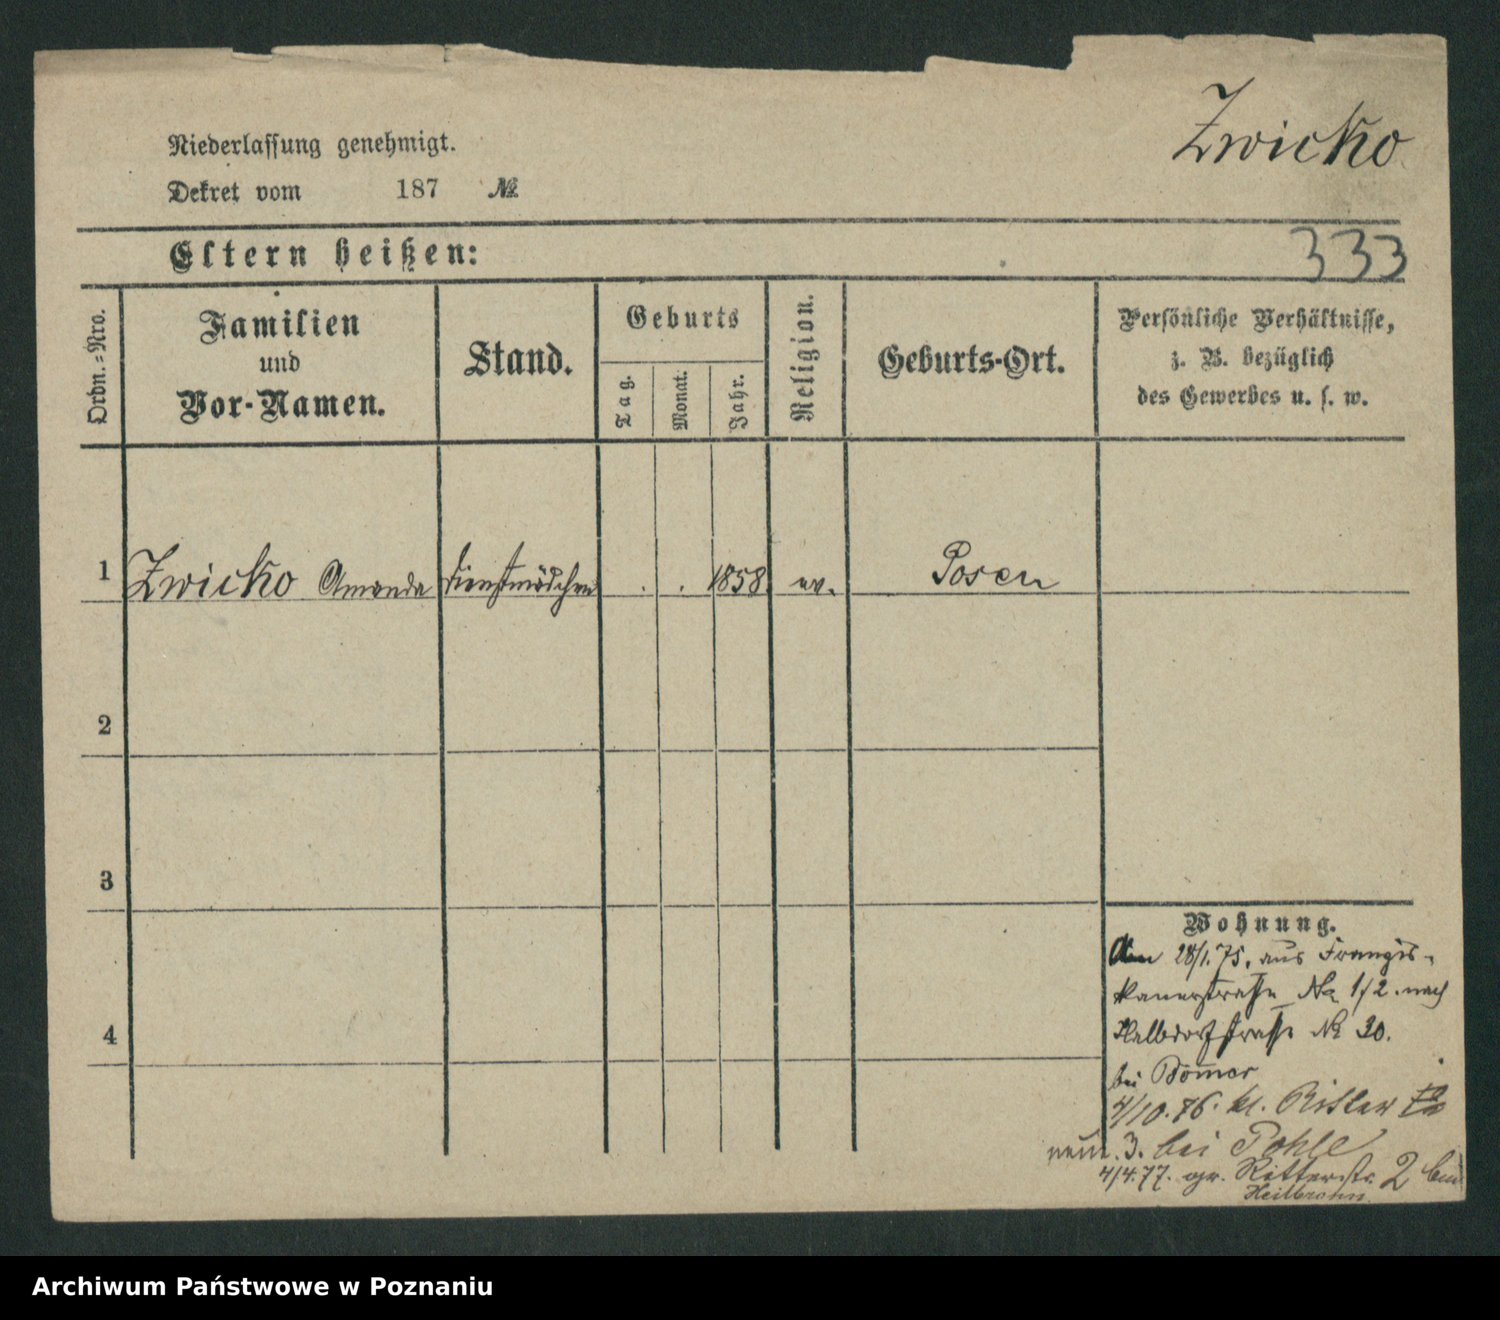 Zwicko
Niederlassung genehmigt.
Dekret vom 187 №
Eltern heißen:
333
Ordn.-Nro.
Familien
und
Vor-Namen.
Stand.
Geburts
Tag.
Monat.
Jahr.
Religion.
Geburts-Ort.
Persönliche Verhältnisse,
z. B. bezüglich
des Gewerbes u. s. w.
1 Zwicko Amanda Dienstmädchen . . 1858 ev. Posen
2
3
4
Wohnung.
Am 28/1.75. aus Franzis-
kanerstrasse No 1/2 nach
Halbdorfstrasse No 30.
bei Bömer
4/10.76. kl. Ritter
3. bei Pohle
4/4.77. gr. Ritterstr. 2 bei
Heilbronn.
Archiwum Państwowe w Poznaniu